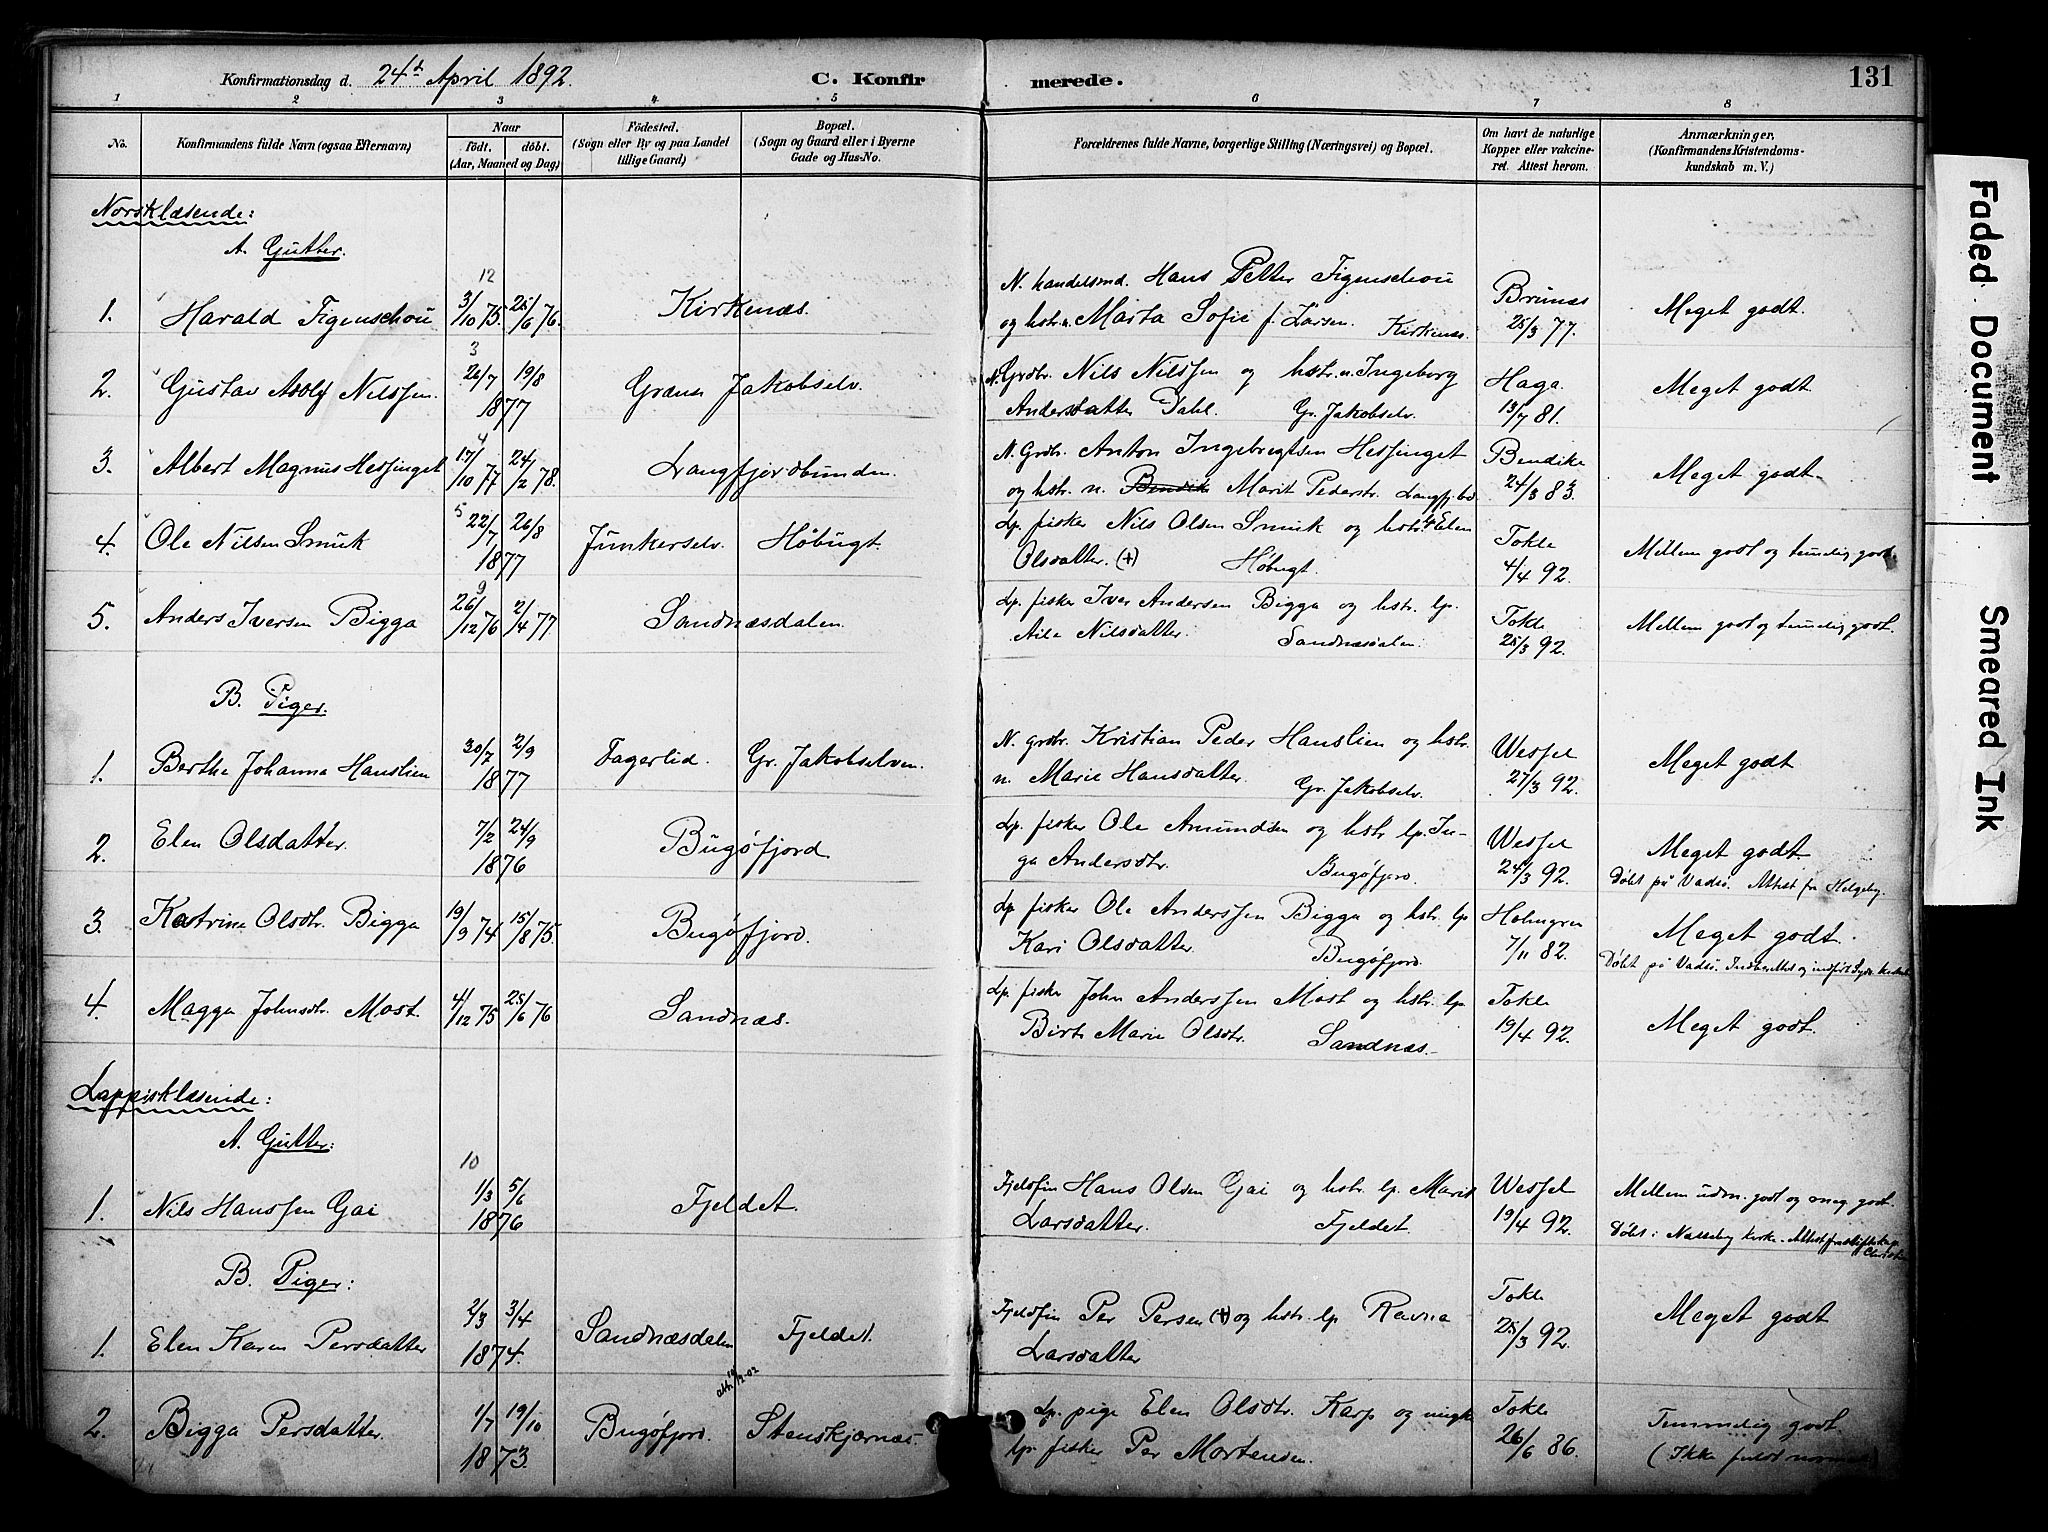 Konfirmationsdag d. 24de April 1892. C. Konfirmerede. 131
1 2 3 4 5 6 7 8
No. Konfirmandens fulde Navn (ogsaa Efternavn) Naar födt. döbt. (Aar, Maaned og Dag) Födested. (Sogn eller By og paa Landet tillige Gaard) Bopæl. (Sogn og Gaard eller i Byerne Gade og Hus-No. Forældrenes fulde Navne, borgerlige Stilling (Næringsvei) og Bopæl. Om havt de naturlige Kopper eller vakcineret. Attest herom. Anmærkninger, (Konfirmandens Kristendomskundskab m. V.)
Norsklæsende:
A. Gutter.
12
1. Harald Figenschou 3/10 75. 25/6 76. Kirkenæs. N. handelsmd. Hans Petter Figenschou Brunæs Meget godt.
og hstr. n. Marta Sofie f. Larsen. Kirkenæs. 25/3 77.
3
2. Gustav Adolf Nilssen. 26/7 19/8 1877 Grænse Jakobselv. N. Grdbr. Nils Nilssen og hstr. n. Ingeborg Haga. Meget godt
Andersdatter Dahl. Gr. Jakobselv. 13/7 81.
4
3. Albert Magnus Hessinget 17/10 77 24/2 78. Langfjordbunden. N. Grdbr. Anton Ingebregtsen Hessinget Bendike Meget godt
og hstr. n. Marit Pederstr. Langfj.bd. 24/3 83.
5
4. Ole Nilsen Smuk 22/7 26/8 1877 Junkerselv. Høbugt. Lp. fisker Nils Olsen Smuk og hstr. lp Elen Tokle Mellem godt og temmelig godt
Olsdatter. (+) Høbugt. 4/4 92.
9
5. Anders Iversen Bigga 26/12 76 2/4 77 Sandnæsdalen Lp. fisker Iver Andersen Bigga og hstr. lp. Tokle Mellem godt og temmelig godt.
Aile Nilsdatter. Sandnæsdalen. 25/3 92.
B. Piger.
1. Berthe Johanna Hanslien 30/7 2/9 1877 Fagerlid. Gr. Jakobselven. N. grdbr. Kristian Peder Hanslien og hstr. Wessel Meget godt
n. Marie Hansdatter. Gr. Jakobselv. 27/3 92.
2. Elen Olsdatter. 7/2 24/9 1876 Bugøfjord Lp. fisker Ole Amundsen og hstr. lp. In- Wessel Meget godt
ga Andersdtr. Bugøfjord. 24/3 92. Döbt på Vadsö. Attest fr. Helgeby.
3. Katrine Olsdtr. Bigga 19/9 74 15/8 75. Bugøfjord. Lp fisker Ole Anderssen Bigga og hstr. lp Holmgren Meget godt.
Kari Olsdatter. Bugøfjord. 7/11 82. Döbt på Vadsö. Indberettet og indført
4. Magga Johnsdtr. Most. 4/12 75 25/6 76 Sandnæs. Lp. fisker John Anderssen Most og hstr. lp Tokle Meget godt.
Birte Marie Olsdtr. Sandnæs. 19/4 92.
Lappisklæsende:
A. Gutter:
10
1. Nils Hanssen Gai 1/3 5/6 1876 Fjeldet. Fjeldfin Hans Olsen Gai og hstr. lp. Marit Wessel Mellem udm. godt og meg. godt.
Larsdatter. Fjeldet. 19/4 92. Döbt i Nasseby kirke. Attest fra
B. Piger:
1. Elen Karen Persdatter 2/3 3/4 1874. Sandnæsdalen Fjeldet. Fjeldfin Per Persen (+) og hstr. lp Ravna Tokle Meget godt
Larsdatter 25/3 92.
2. Bigga Persdatter. 1/7 19/10 1873. Bugøfjord. Stenskjærnæs. Lp. pige Elen Olsdtr. Karp og ungk. Tokle Temmelig godt.
lp. fisker Per Mortensen. 26/6 86. (Ikke fuldt normal)
Faded Document
Smeared Ink